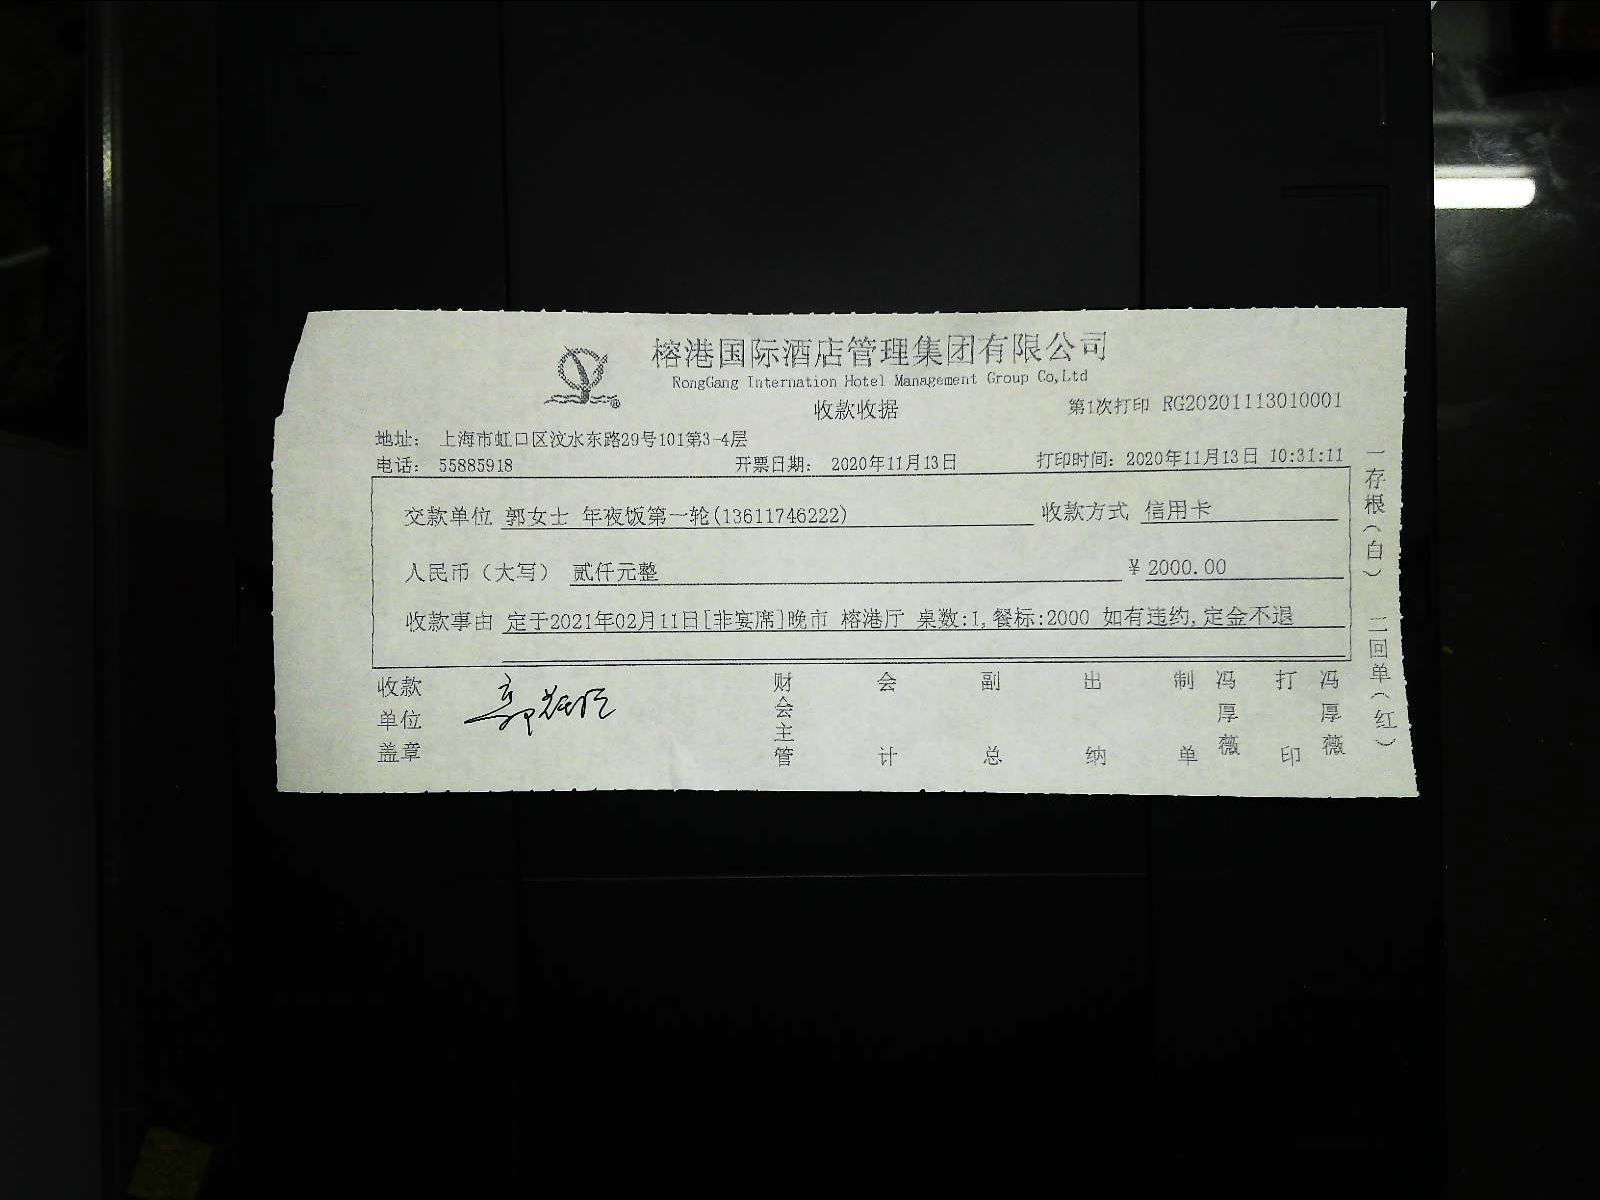 榕港国际酒店管理集团有限公司
RongGang Internation Hotel Management Group Co,Ltd
收款收据
第1次打印 RG20201113010001
地址： 上海市虹口区汶水东路29号101第3-4层
电话： 55885918 开票日期： 2020年11月13日 打印时间：2020年11月13日 10:31:11
交款单位 郭女士 年夜饭第一轮(13611746222) 收款方式 信用卡
人民币（大写） 贰仟元整 ¥ 2000.00
收款事由 定于2021年02月11日[非宴席]晚市 榕港厅 桌数:1,餐标:2000 如有违约,定金不退
收款单位盖章
财会主管
会计
副总
出纳
制单 冯厚薇
打印 冯厚薇
一存根（白） 二回单（红）